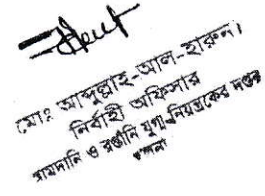 মোঃ আব্দুল্লাহ-আল-হারুন।
নির্বাহী অফিসার
আমদানি ও রপ্তানি যুগ্ম-নিয়ন্ত্রকের দপ্তর
খুলনা